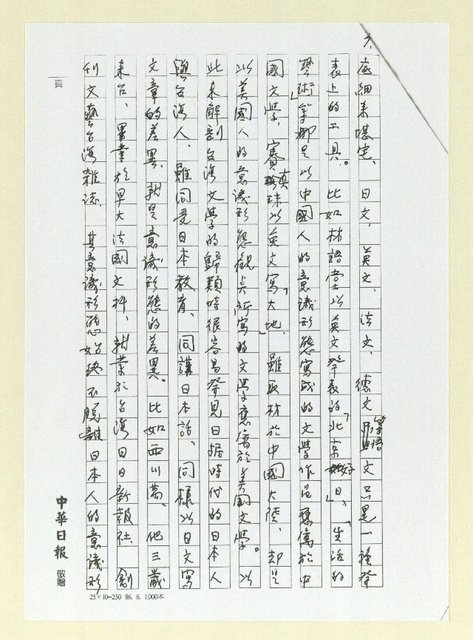 7.
底細來堪定、日文、英文、法文、德文、漢語文只是一種發
表上的工具。比如林語堂以英文發表的「北京好日」、「生活的
藝術」等都是以中國人的意識形態寫成的文學作品應屬於中
國文學，賽珍珠以英文寫「大地」，雖取材於中國大陸，却是
以美國人的意識形態觀点所寫的文學應屬於美國文學。以
此來解剖台灣文學的歸類時很容易發見日據時代的日本人
與台灣人，雖同受日本教育、同講日本話、同樣以日文寫
文章的差異，就是意識形態的差異。比如西川荖，他三歲
來台，畢業於早大法國文科，就業於台灣日日新報社，創
刊文藝台灣雜誌，其意識形態始終不脫離日本人的意識形
中華日報 敬贈
25×10=250 86.6.1,000本